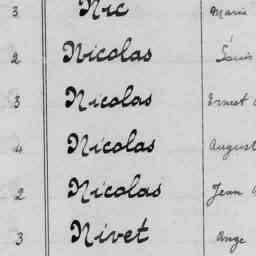 3 Nic Marie
2 Nicolas Louis
3 Nicolas Ernest
4 Nicolas August
2 Nicolas Jean
3 Nivet Ange